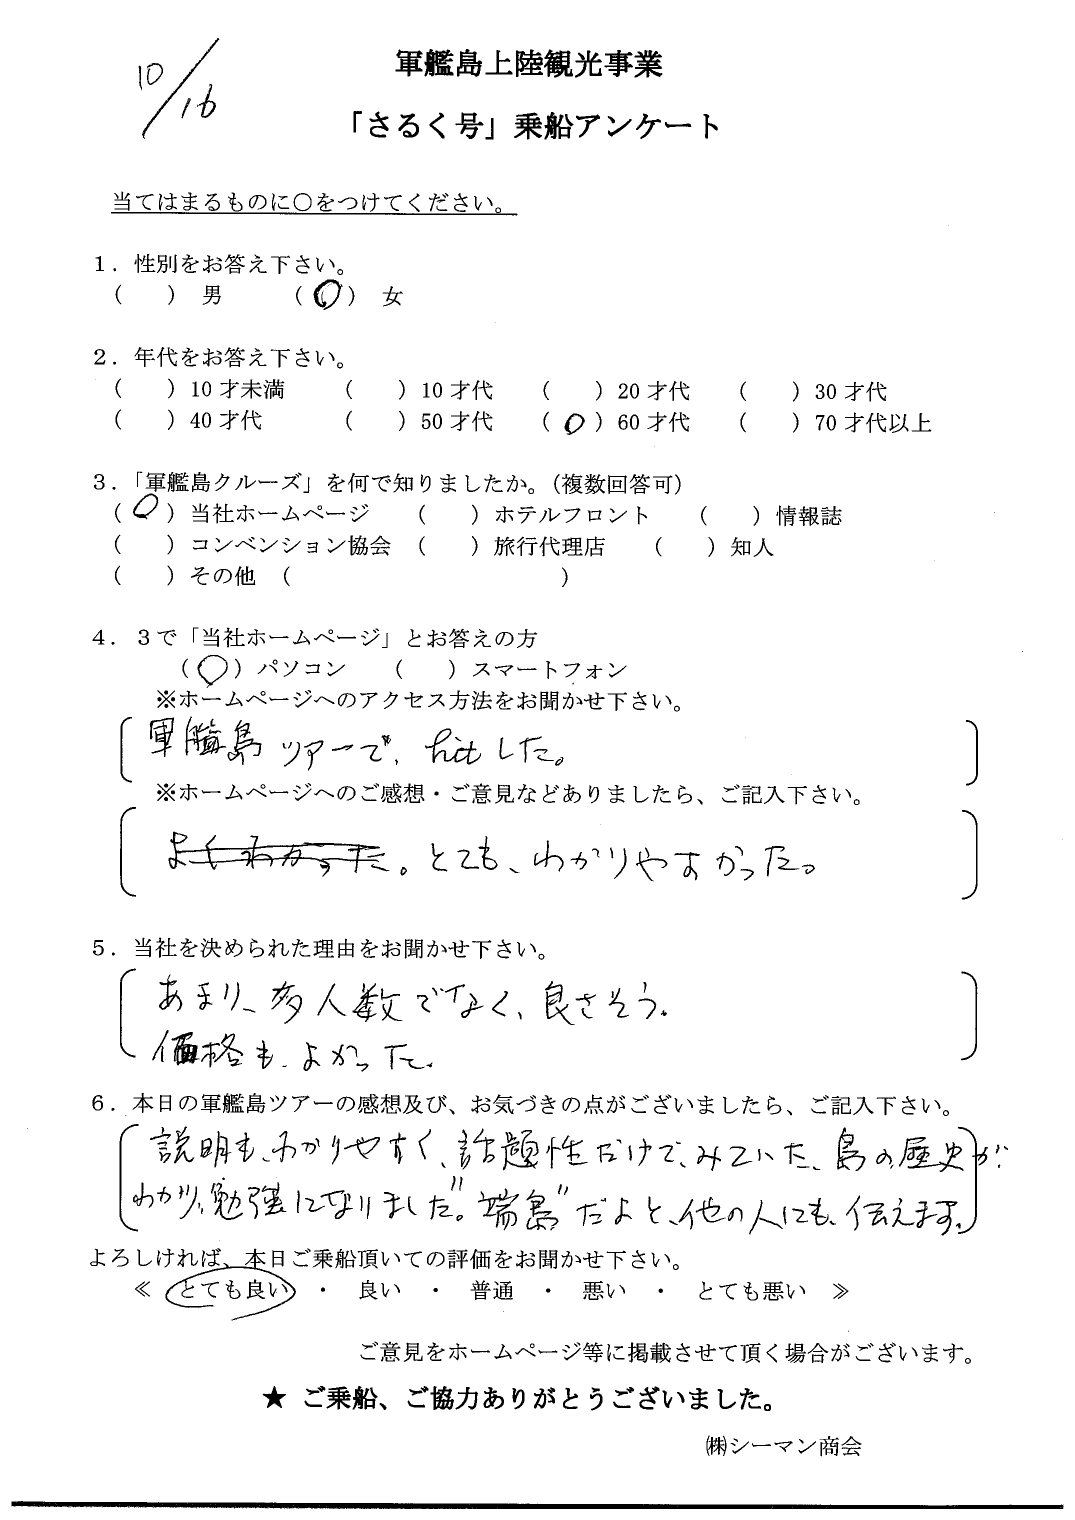 10/16
軍艦島上陸観光事業
「さるく号」乗船アンケート
当てはまるものに○をつけてください。
１．性別をお答え下さい。
（　　）男　　（○）女
２．年代をお答え下さい。
（　　）10才未満　　（　　）10才代　　（　　）20才代　　（　　）30才代
（　　）40才代　　（　　）50才代　　（○）60才代　　（　　）70才代以上
３．「軍艦島クルーズ」を何で知りましたか。（複数回答可）
（○）当社ホームページ　　（　　）ホテルフロント　　（　　）情報誌
（　　）コンベンション協会　（　　）旅行代理店　　（　　）知人
（　　）その他　（　　　　　　　　　　　　）
４．３で「当社ホームページ」とお答えの方
（○）パソコン　　（　　）スマートフォン
※ホームページへのアクセス方法をお聞かせ下さい。
軍艦島ツアーで、hitした。
※ホームページへのご感想・ご意見などありましたら、ご記入下さい。
よくわかった。とても、わかりやすかった。
５．当社を決められた理由をお聞かせ下さい。
あまり、多人数でなく、良さそう。
価格も、よかった。
６．本日の軍艦島ツアーの感想及び、お気づきの点がございましたら、ご記入下さい。
説明も、わかりやすく、話題性だけで、みていた、島の歴史が、
わかり、勉強になりました。"端島"だよと、他の人にも、伝えます。
よろしければ、本日ご乗船頂いての評価をお聞かせ下さい。
≪　とても良い　・　良い　・　普通　・　悪い　・　とても悪い　≫
ご意見をホームページ等に掲載させて頂く場合がございます。
★ ご乗船、ご協力ありがとうございました。
㈱シーマン商会